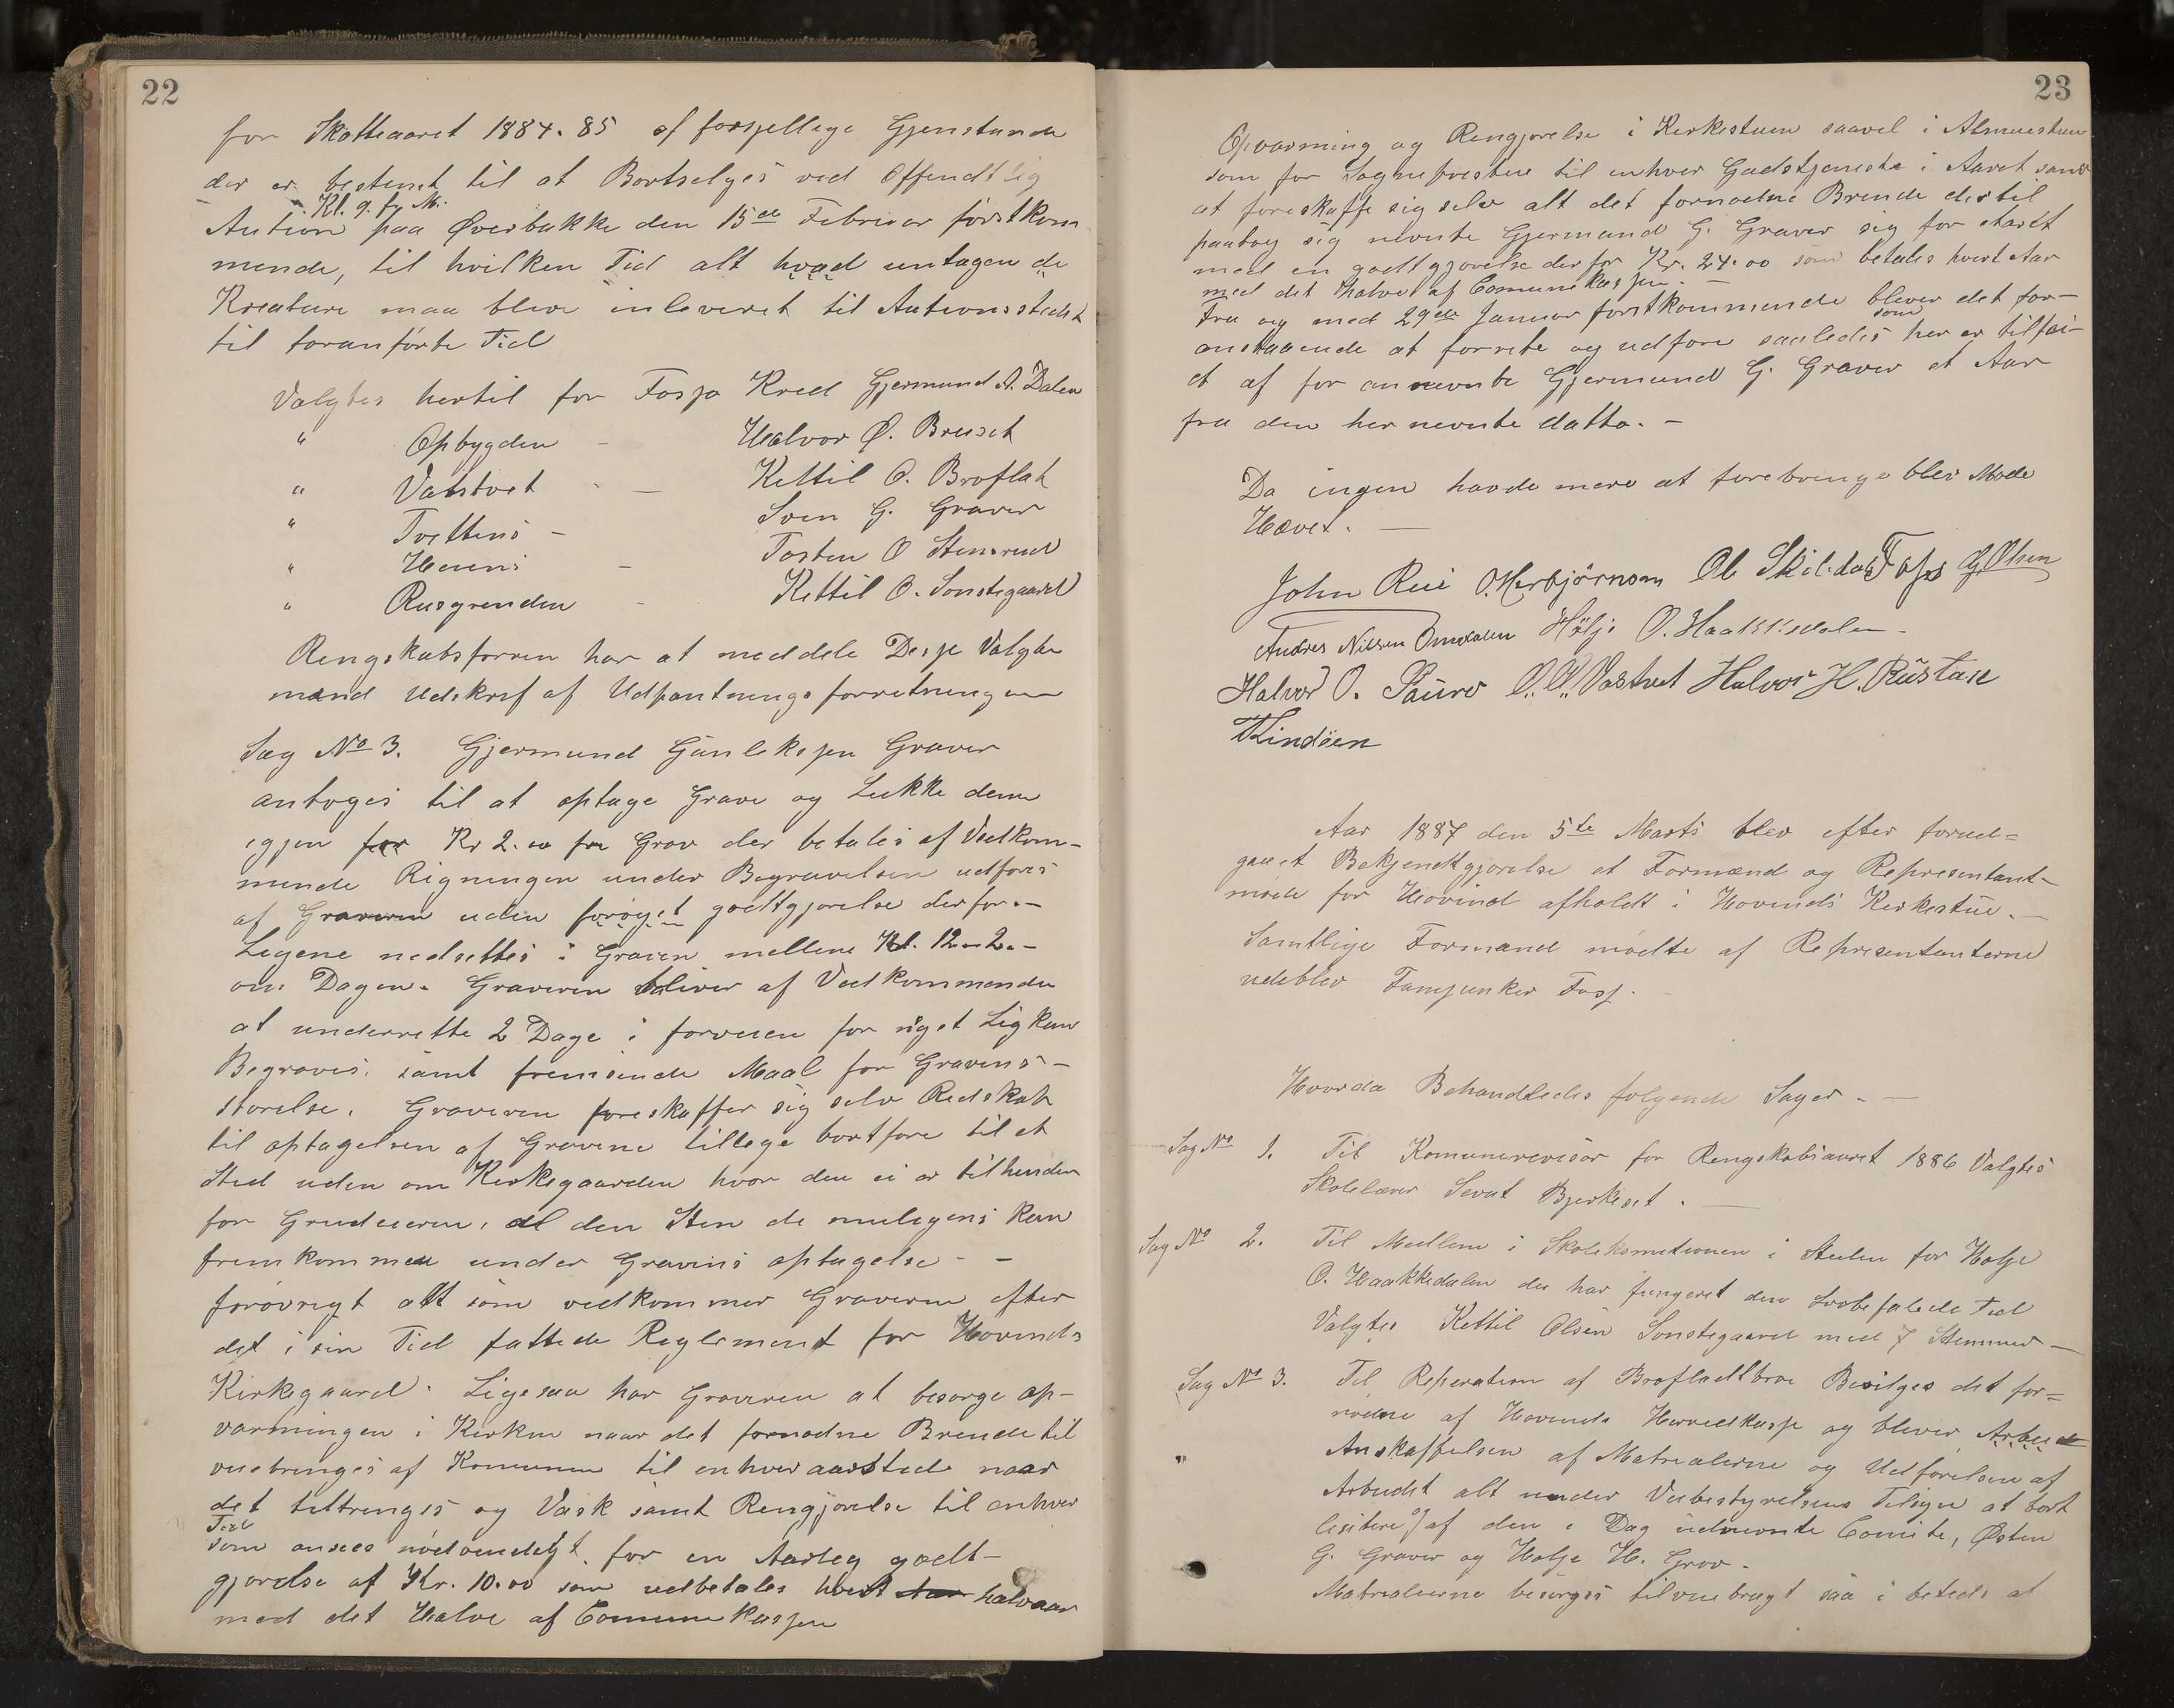 22
for Skatteaaret 1884-85 af forsjellige Gjenstande
der er bestemt til at Bortselges ved Offendtlig
Kl. 9. fr M.
Aution paa Øverbakke den 15de Februar førstkom
mende, til hvilken Tid alt hvad untagen de
Kreature maa blive inleveret til Autionsstedet
til foranførte Tid
Valgtes hertil for Fosso Kred Gjermund A. Dalen
" Opbygden - Halvor Ø. Bruset
" Vatstvet - Kettil O. Broflat
" Tvettens - Sven G. Graver
" Hevins - Tosten O Stensrud
" Rusgrenden - Kettil O. Sønstegaard
Rengskabsføren har at meddele Desse Valgte
mænd Udskrif af Udpantningsforretningen
Sag No 3. Gjermund Gunlekssen Graver
antoges til at optage Grave og Lukke dem
igjen for Kr 2.00 pr Grav der betales af Vedkom-
mende Rigningen under Begravelsen udføres
af Graveren uden forøget godtgjørelse derfor.-
Legene nedsettes i Graven mellem Kl. 12 - 2.-
om Dagen. Graveren bliver af Vedkommende
at underrette 2 Dage i forveien før noget Lig kan
Begraves. samt fremsende Maal for Gravens-
størelse. Graveren foreskaffer sig selv Redskab
til optagelsen af Gravene tillege bortføre til et
Sted uden om Kirkegaarden hvor den ei er tilhinder
for Grudeieren, al den Sten de muligens kan
fremkommen under Gravens optagelse - -
forøvrigt alt som vedkommer Graveren efter
det i sin Tid fattede Reglement for Hovinds
Kirkegaard. Ligesaa har Graveren at besørge op-
varmingen i Kirken naar det fornødne Brende til
veiebringes af Komunen til enhver aarstide naar
det tiltrenges og Vask samt Rengjørelse til enhver
Tid
som ansees nødvendigt. for en Aarleg godt-
gjørelse af Kr. 10.00 som udbetales hvert Aar halvaar
med det Halve af Comunekassen
23
Opvarming og Rengjørelse i Kirkestuen saavel i Almuestuen
som for Sognepresten til enhver Gudstjeneste i Aaret samt
at foreskaffe sig selv alt det fornødne Brende dertil
paatog sig nevnte Gjermund G. Graver sig for aaret
med en godtgjørelse derfor Kr. 24.00 som betales hvert Aar
med det halve af Comunekassen. -
Fra og med 29de Januar førstkommende bliver det for-
som
anstaaende at forrete og udføre saaledes her er tilføi-
et af for annevnte Gjermund G. Graver et Aar
fra den her nevnte datto. -
Da ingen havde mere at forebringe blev Møde
Hævet. -
John Rui O. Herbjørnsen Ole Skildas Foss G. Olsen
Andres Nilsen Omdalen Hølje O. Haakkedalen -
Halvor O. Saure O. O. Vastvet Halvor H. Rustan
T Lindöen
Aar 1887 den 5te Marts blev efter forud=
gaaet Bekjendtgjørelse et Formænd og Representant-
møde for Hovind afholdt i Hovinds Kirkestue. -
Samtlige Formænd mødte af Representanterne
udeblev Fanejunker Foss. -
Hvorda Behandledes følgende Sager. -
Sag No 1. Til Komunerevisor for Rengskabsaaret 1886 Valgtes
Skolelærer Sevat Bjerkeset. -
Sag No 2. Til Medlem i Skolekomitionen i Steden for Holje
O. Haakkedalen der har fungeret den lovbefalede Tid
Valgtes Kettil Olsen Sønstegaard med 7 Stemmer -
Sag No 3. Til Reperation af Brofladtbroe Bevilges det for=
nødne af Hovinds Herredkasse og bliver Arbeide
" Anskaffelsen af Matrealerne og Udførelsen af
Arbeidet alt under Veibestyrelsens Tilsyn at bort
lisitere og af den i Dag udnevnte Comite, Østen
G. Graver og Holje H. Grov. -
Matrealerne besørges tilveiebragt saa i betids at